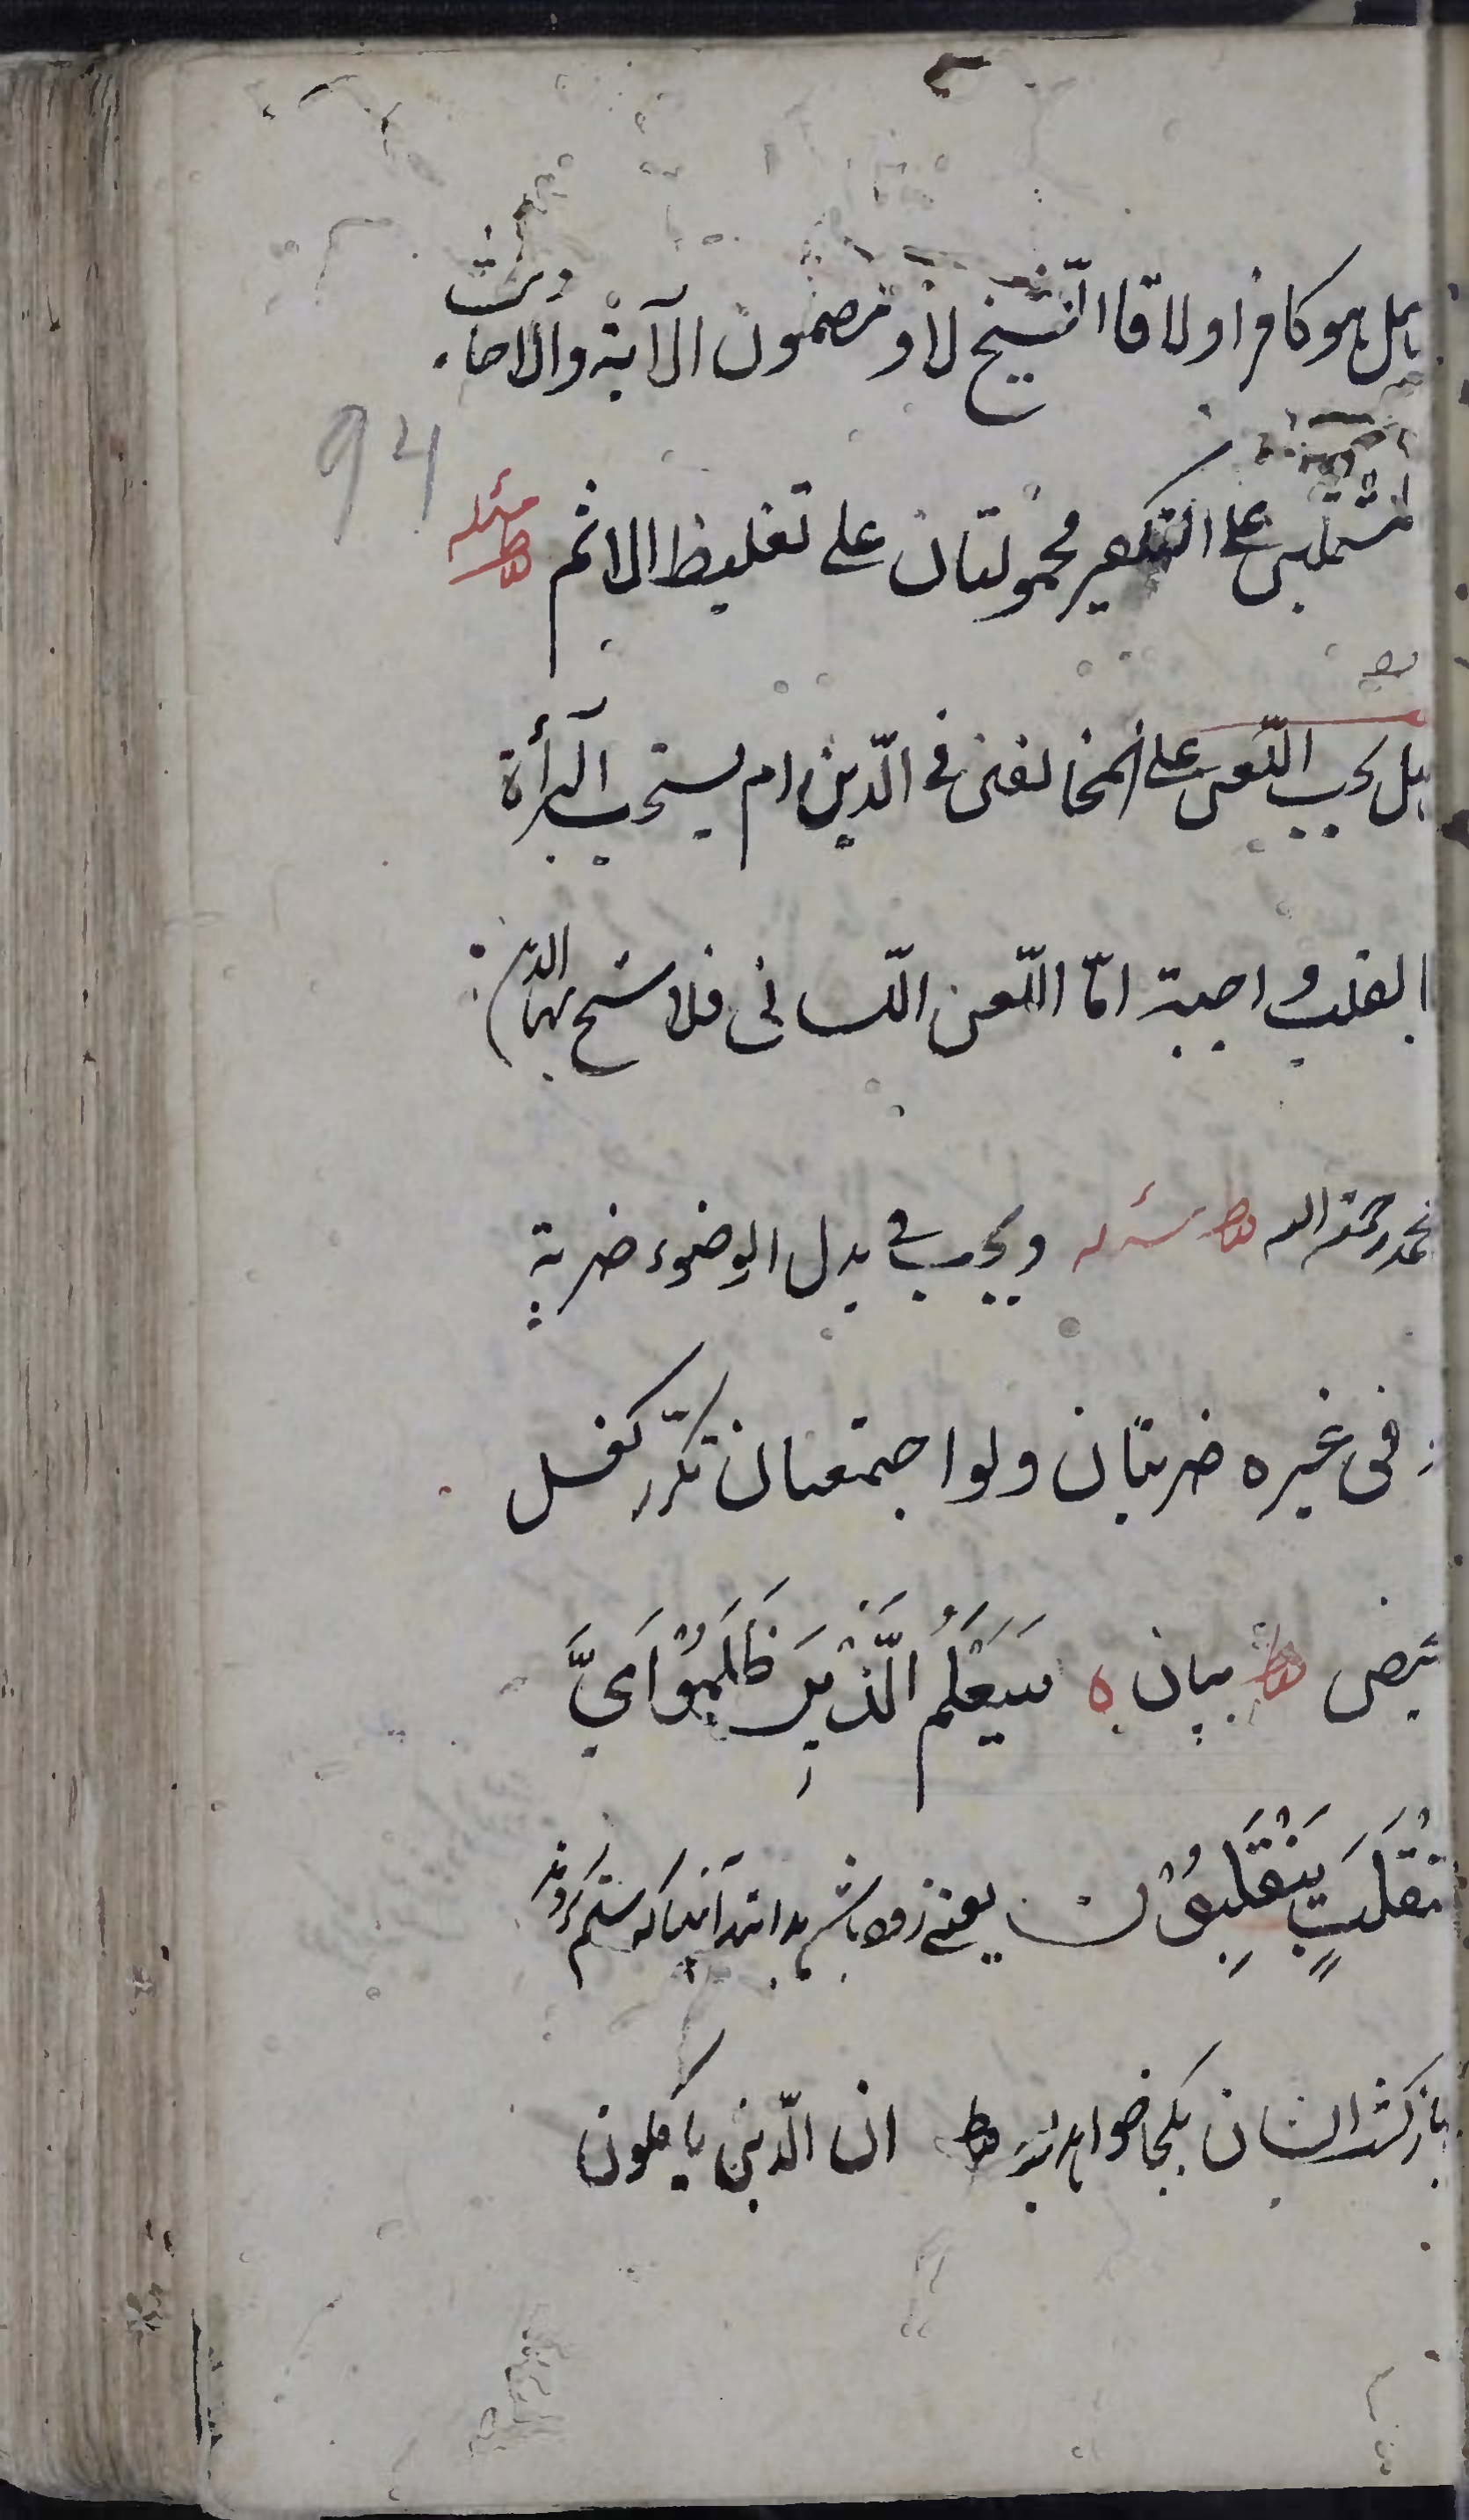 هل هو كافر او لا قا الشيخ لا و مضمون الآية والاحاديث
94
المشتملين على التكفير محمولتان على تغليظ الاثم مسئله
هل يجب اللّعن على المخالفين في الدّين ام يستحب البرأة
بالقلب واجبة امّا اللّعن اللّساني فلا شيخ بهاء الدين
محمد رحمه الله مسئله ويجب في بدل الوضوء ضربة
و في غيره ضربتان ولو اجتمعتا ن تكرر كغسل
بيان سَيَعْلَمُ الَّذْيِنَ ظَلَمُوْا اَىَّ
مُنْقَلَبٍ يَنْقَلِبُوْنَ يعنى زود باشد بدانند آنها كه ستم كردند
باز گشت ايشان بكجا خواهد بود ان الّذين ياكلون